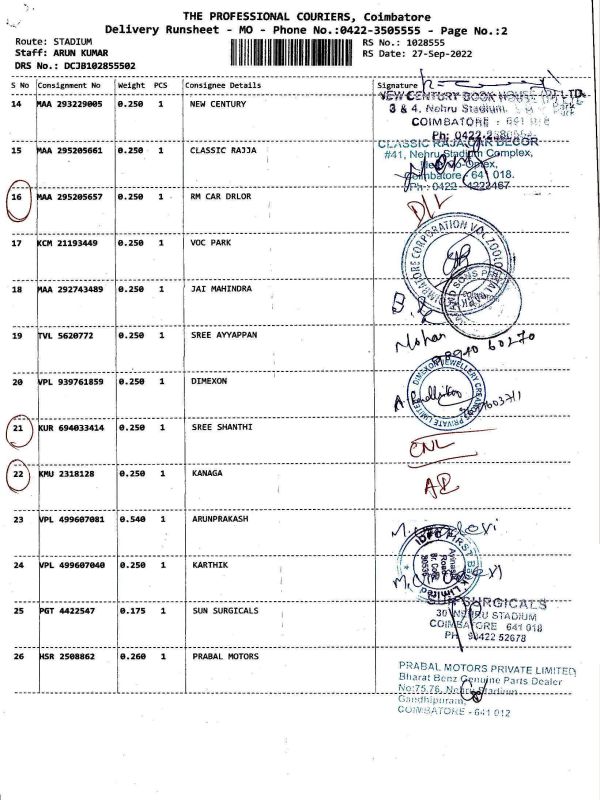 THE PROFESSIONAL COURIERS, Coimbatore
Delivery Runsheet - MO - Phone No.:0422-3505555 - Page No.:2
Route: STADIUM
Staff: ARUN KUMAR
DRS No.: DCJB102855502
RS No.: 1028555
RS Date: 27-Sep-2022
S No Consignment No Weight PCS Consignee Details Signature
14 MAA 293229005 0.250 1 NEW CENTURY
NEW CENTURY BOOK HOUSE (P) LTD.
3 & 4, Nehru Stadium,
COIMBATORE - 641 018
Ph: 0422
15 MAA 295205661 0.250 1 CLASSIC RAJJA
CLASSIC RAJA CAR DECOR
#41, Nehru Stadium Complex,
Coimbatore - 641 018.
Ph : 0422 - 4222467
16 MAA 295205657 0.250 1 RM CAR DRLOR
D/L
17 KCM 21193449 0.250 1 VOC PARK
COIMBATORE CORPORATION VOC ZOOLOGICAL
18 MAA 292743489 0.250 1 JAI MAHINDRA
19 TVL 5620772 0.250 1 SREE AYYAPPAN
Mohan
60270
20 VPL 939761859 0.250 1 DIMEXON
DIMEXON JEWELLERY CREATIONS PRIVATE LIMITED
21 KUR 694033414 0.250 1 SREE SHANTHI
CNL
22 KMU 2318128 0.250 1 KANAGA
AD
23 VPL 499607081 0.540 1 ARUNPRAKASH
24 VPL 499607040 0.250 1 KARTHIK
IDFC FIRST Bank Limited
25 PGT 4422547 0.175 1 SUN SURGICALS
SURGICALS
30 NEHRU STADIUM
COIMBATORE 641 018
PH 0422 52678
26 HSR 2508862 0.260 1 PRABAL MOTORS
PRABAL MOTORS PRIVATE LIMITED
Bharat Benz Genuine Parts Dealer
No:75,76, Nehru Stadium
Gandhipuram,
COIMBATORE - 641 012